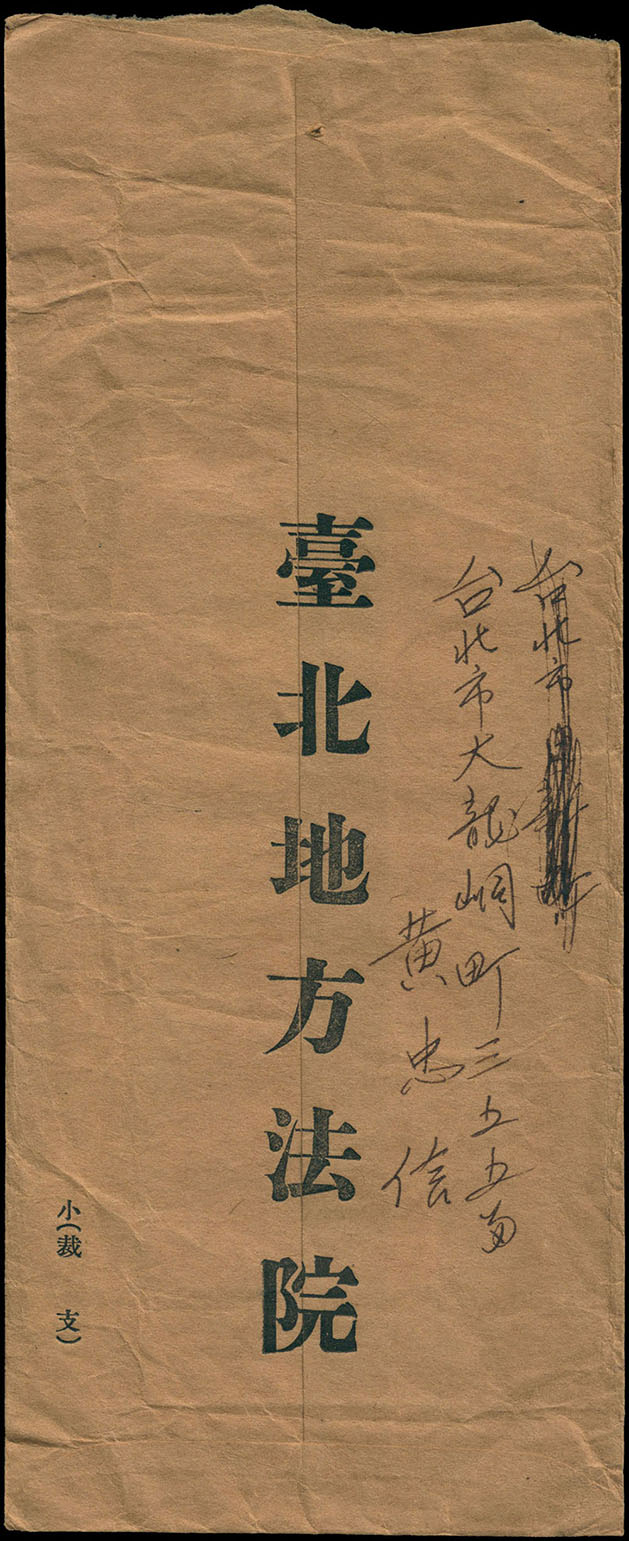 台北市
台北市大龍峒町三五五番
黄忠信
臺北地方法院
小(裁 支)